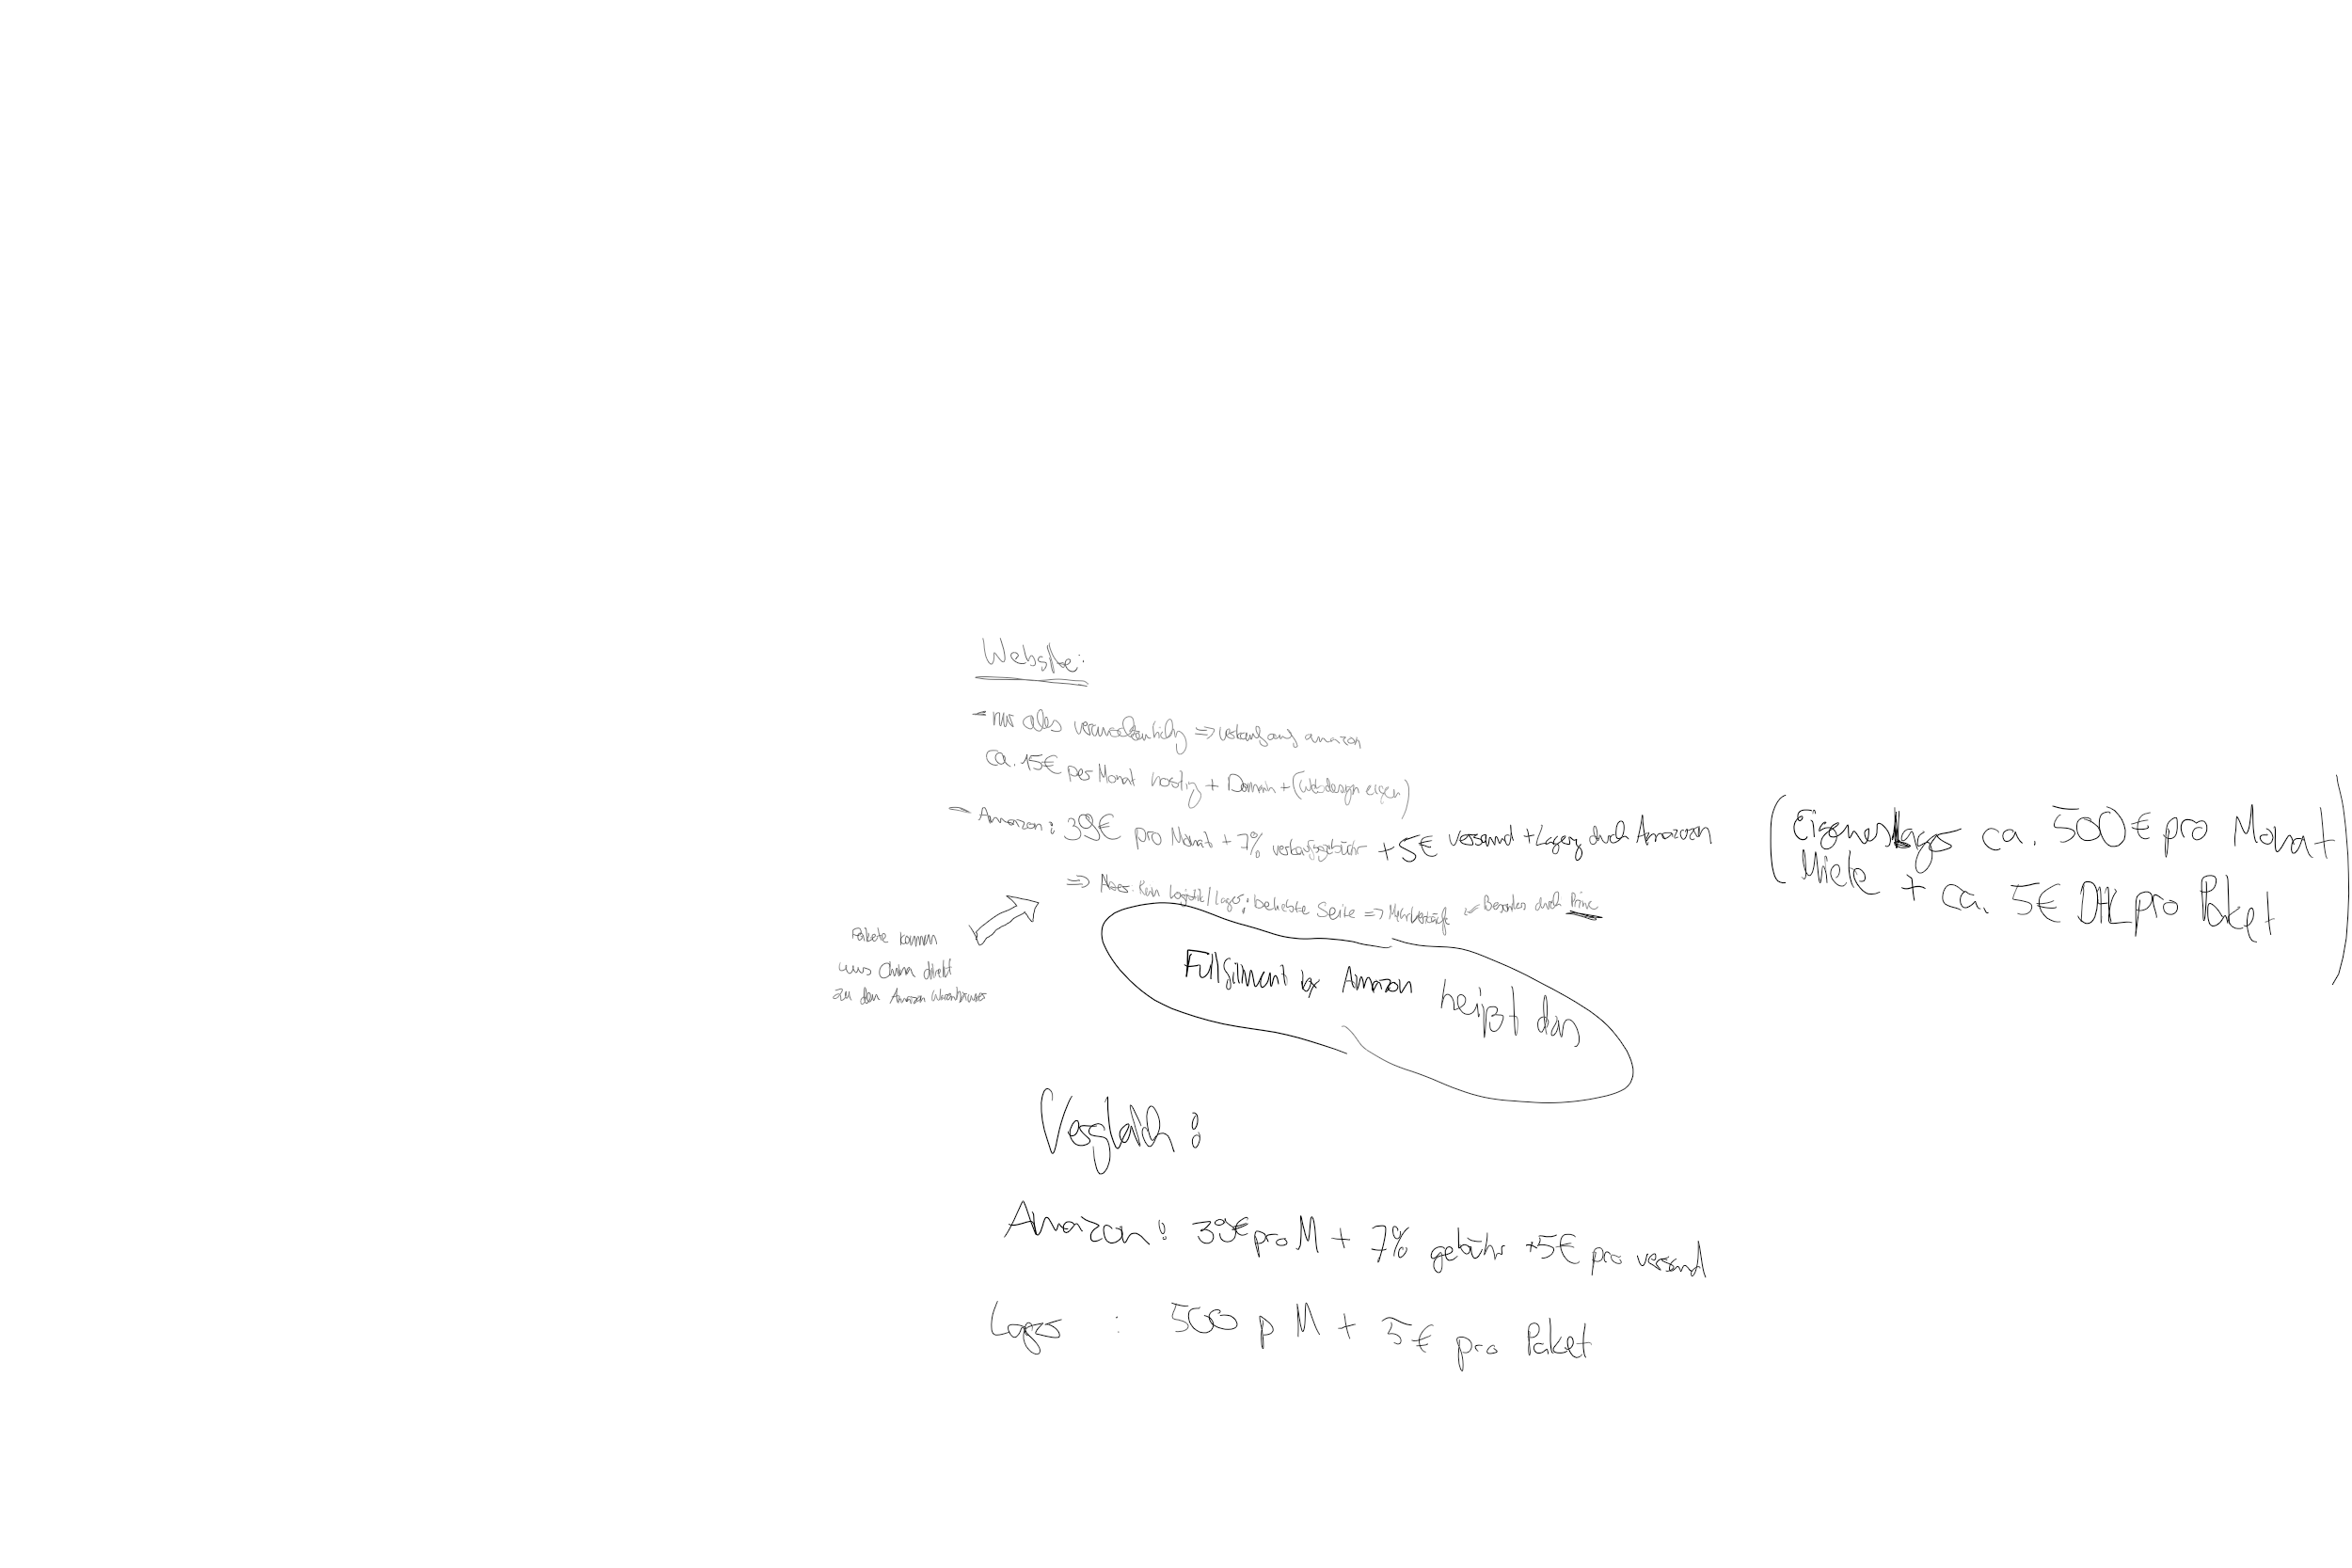 Website:
- nur alles => Verkauf auf amazon
ca. 15€ per Monat hosting + Domain + (Webdesign eigen)
- Amazon: 39€ pro Monat + 7% verkaufsgebühr + 5€ Versand + Lagern durch Amazon
(Eigenes Lager ca. 500€ pro Monat
Miete + ca. 5€ DHL pro Paket)
=> Aber kein Logistik/Lager; beliebte Seite => Mehr Verkäufe Besonders durch Prime
Pakete kommen
aus China direkt
zu den Amazon Warenhäuser
Fullfillment by Amazon heißt das
Vergleich:
Amazon: 39€ pro M + 7% gebühr +5€ pro versand
Lager : 500 p M + 5€ pro Paket